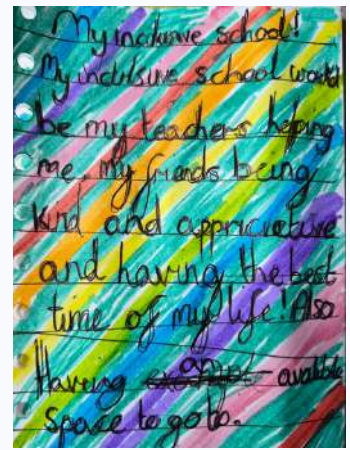 My inclusive school!
My inclusive school would
be my teachers helping
me, my friends being
kind and appriciative
and having the best
time of my life! Also
Having an avalible
space to go to.